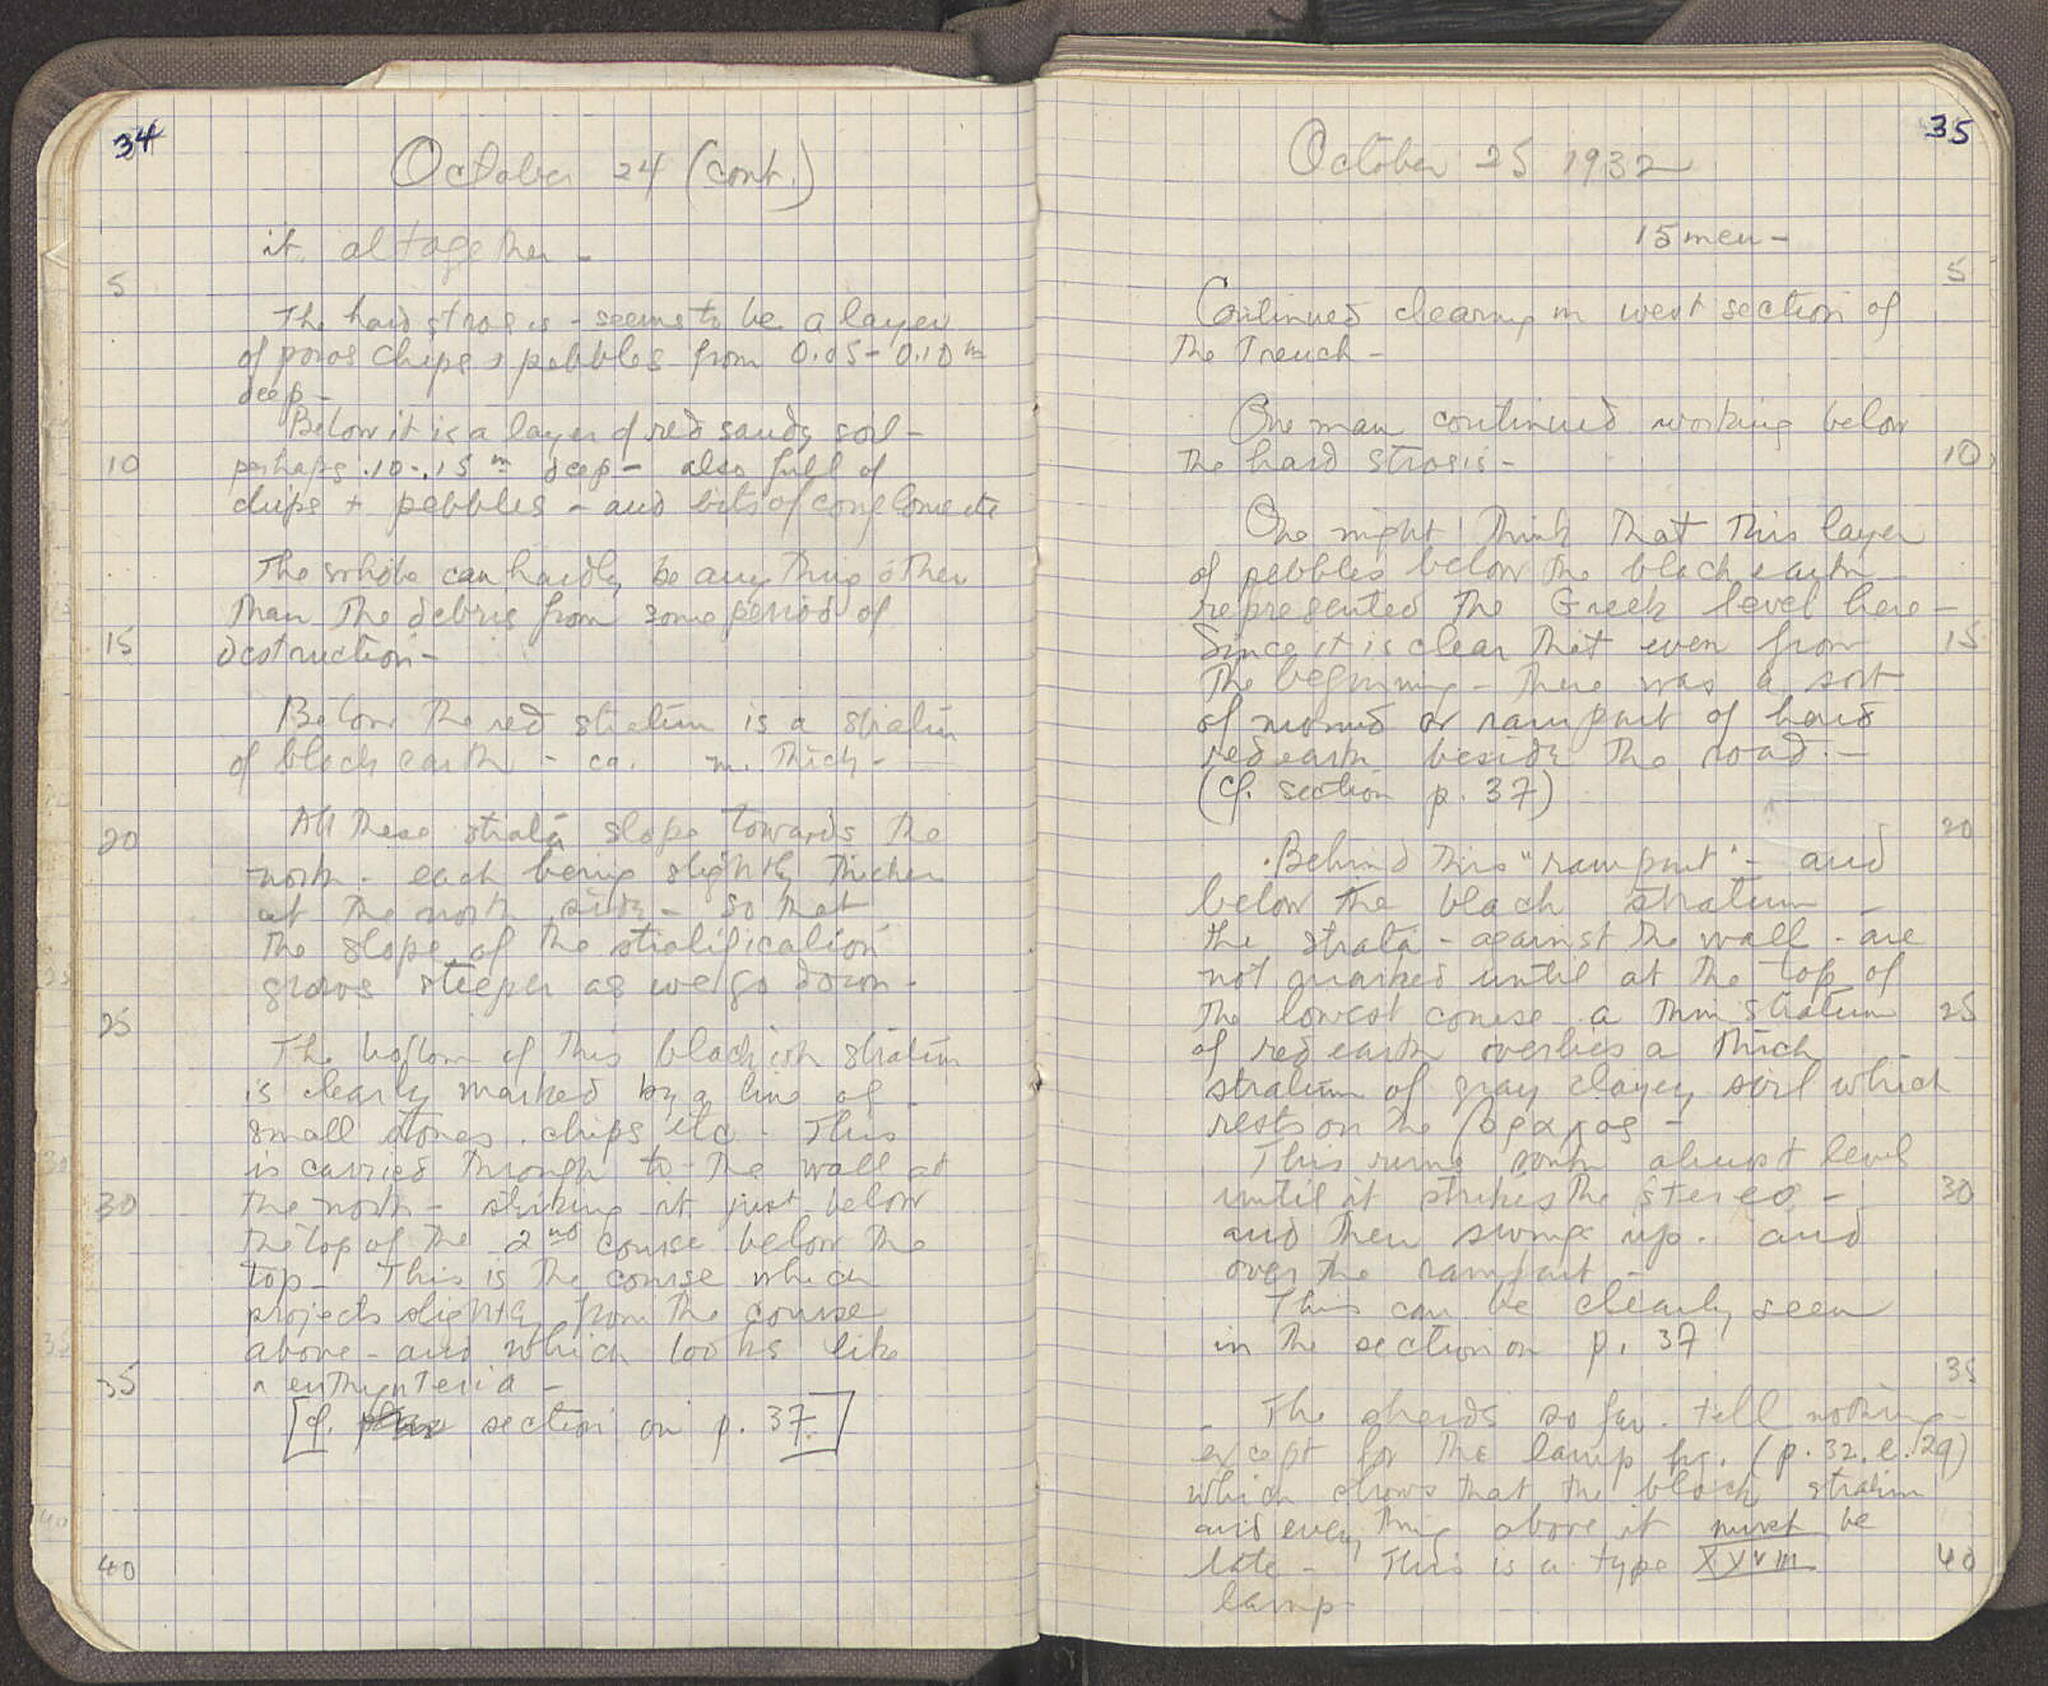 34
October 24 (cont.)
it altogether -
5
The hard strosis - seems to be a layer
of poros chips + pebbles from 0.05 - 0.10 m
deep -
Below it is a layer of red sandy soil -
10
perhaps .10-.15 m deep - also full of
chips + pebbles - and bits of conglomerate
The whole can hardly be anything other
than the debris from some period of
15
destruction -
Below the red stratum is a stratum
of black earth - ca. m. thick -
All these strata slope towards the
20
north - each being slightly thicker
at the north side - so that
the slope of the stratification
grows steeper as we go down -
25
The bottom of this blackish stratum
is clearly marked by a line of
small stones, chips etc. This
is carried through to the wall at
30
the north - striking it just below
the top of the 2nd course below the
top - This is the course which
projects slightly from the course
above - and which looks like
35
a euthynteria -
[cf. section on p. 37.]
40
35
October 25 1932
15 men -
5
Continued clearing in west section of
the trench -
One man continued working below
10
the hard strosis -
One might think that this layer
of pebbles below the black earth
represented the Greek level here -
15
Since it is clear that even from
the beginning - there was a sort
of mound or rampart of hard
red earth beside the road. -
(cf. section p. 37)
20
Behind this "rampart" - and
below the black stratum -
the strata - against the wall - are
not marked until at the top of
25
the lowest course a thin stratum
of red earth overlies a thick
stratum of gray clayey soil which
rests on the βραχος -
This runs south almost level
30
until it strikes the stereo -
and then swings up. and
over the rampart -
This can be clearly seen
in the section on p. 37
35
The sherds so far tell nothing
except for the lamp fr. (p. 32, l. 29)
which shows that the black stratum
and everything above it must be
40
late - This is a type XXVIII
lamp